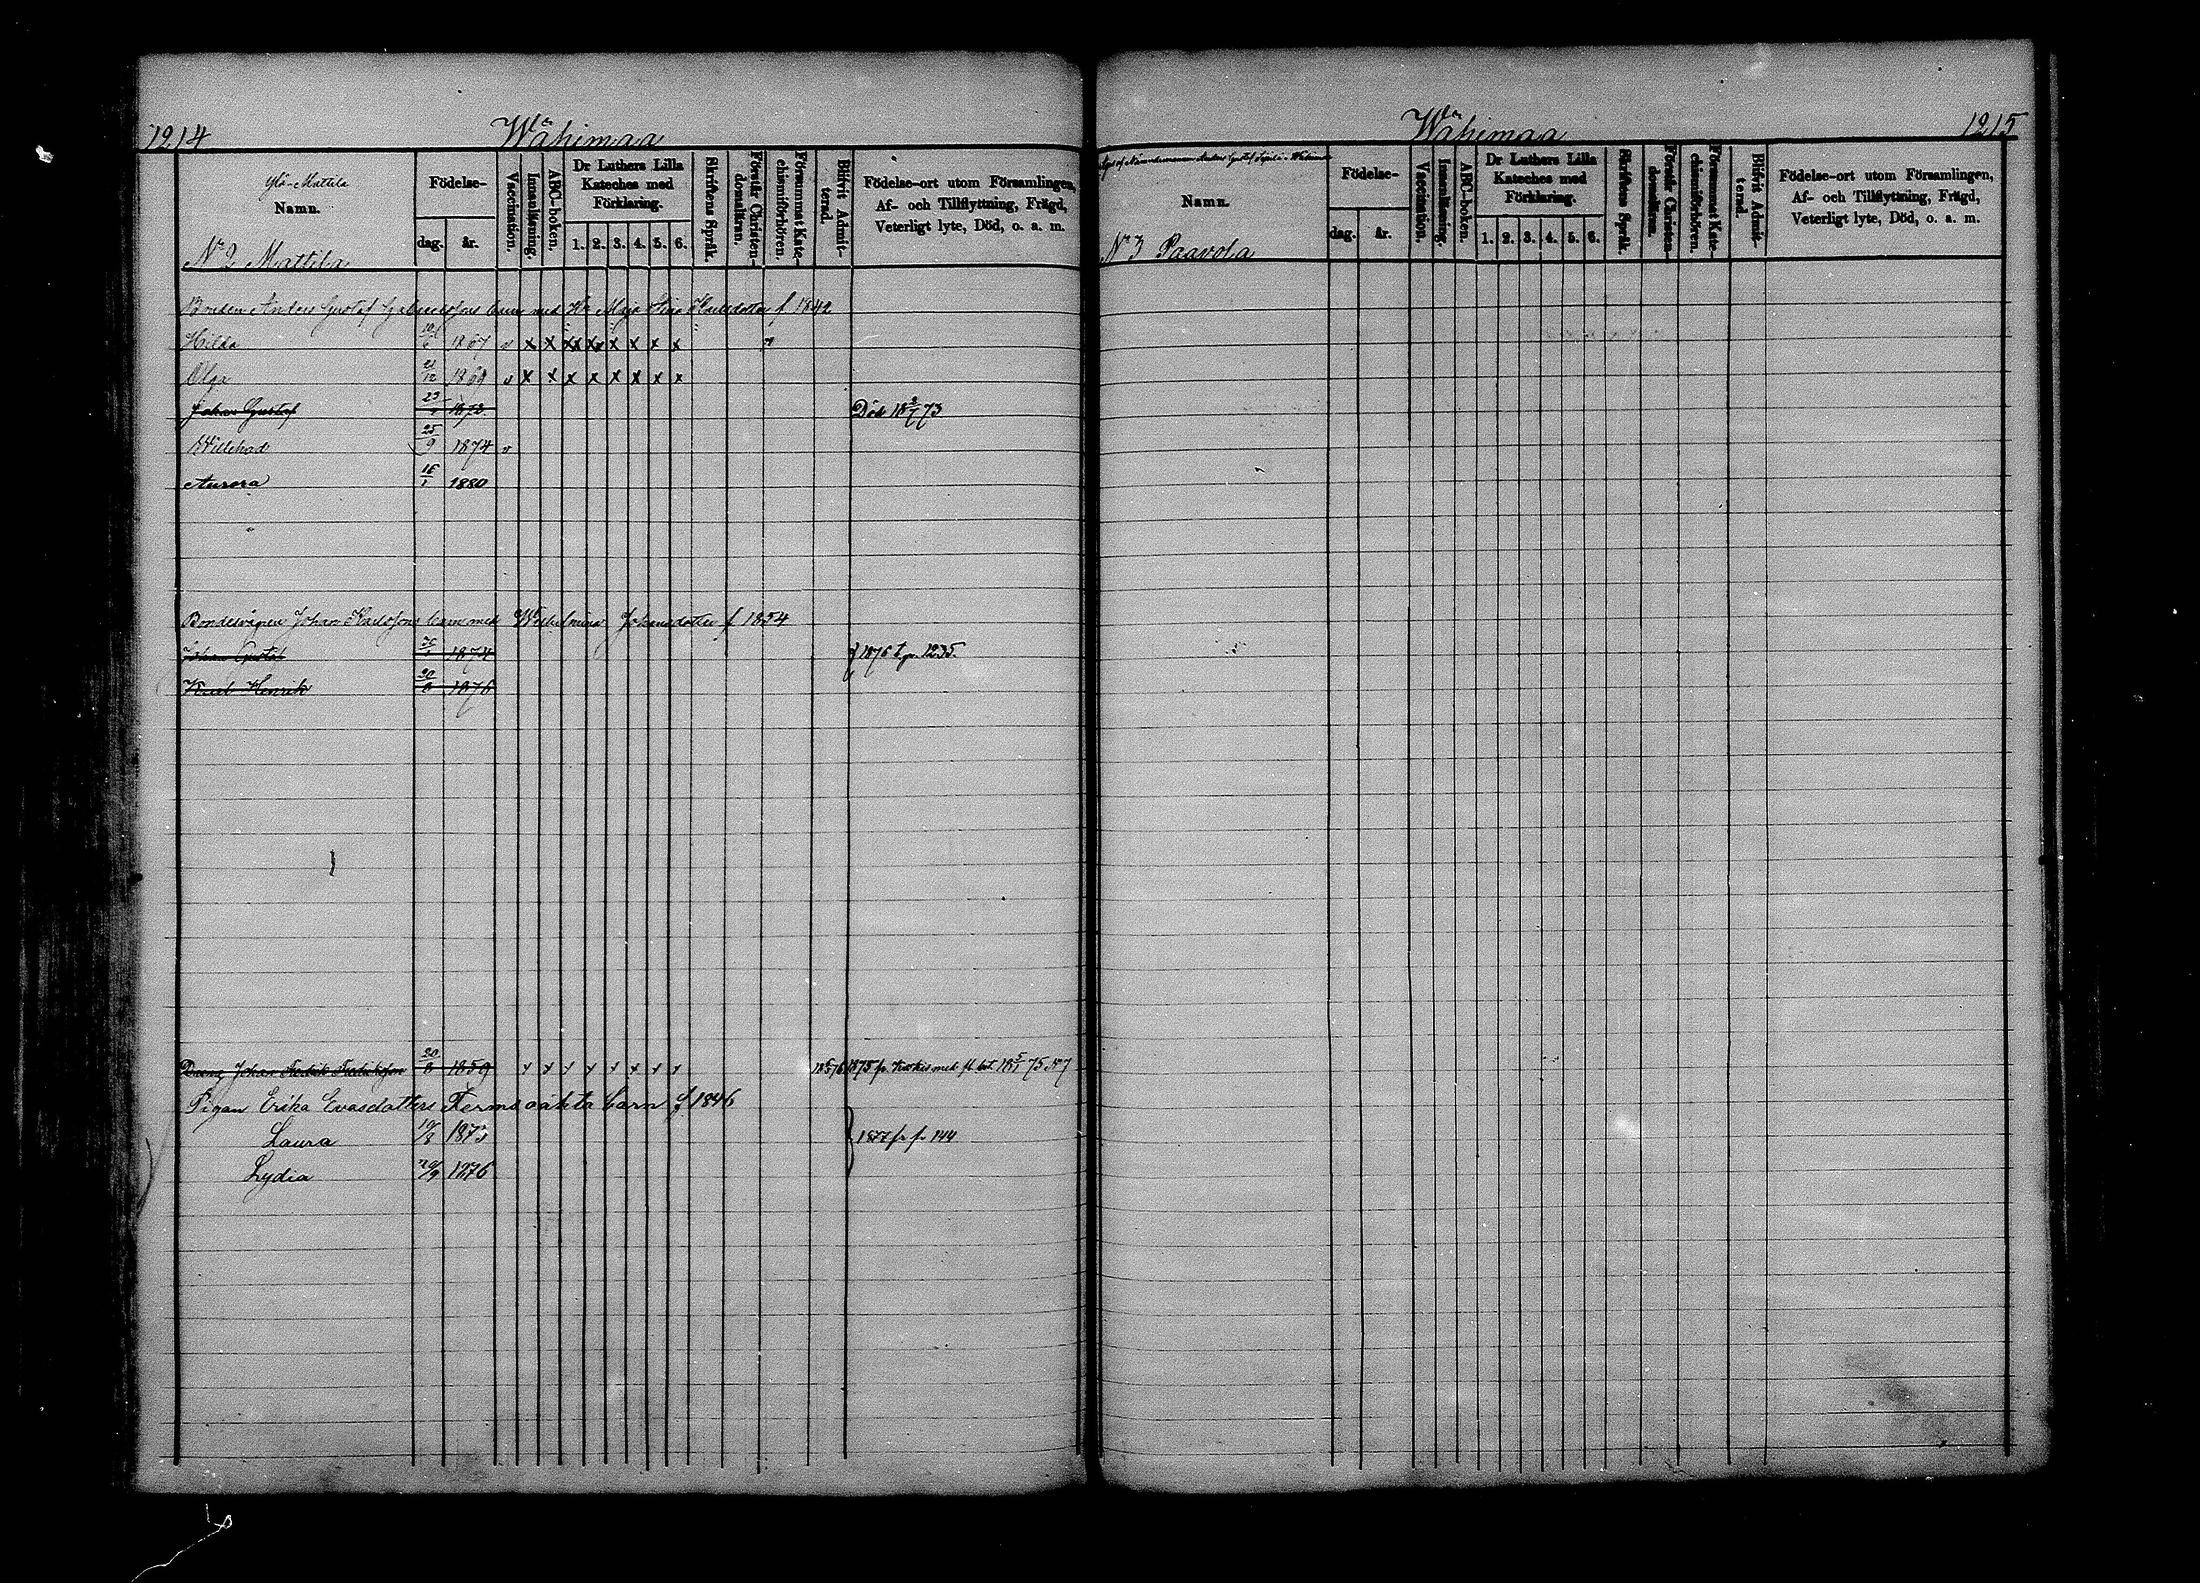 1214 Wähimaa
Ylä-Mattila
Namn.
Födelse-
dag. år.
Vaccination.
Innanläsning.
ABC-boken.
Dr Luthers Lilla Kateches med Förklaring.
1. 2. 3. 4. 5. 6.
Skriftens Språk.
Förstår Christendomsläran.
Försummat Katechismiförhören.
Blifvit Admitterad.
Födelse-ort utom Församlingen,
Af- och Tillflyttning, Frägd,
Veterligt lyte, Död, o. a. m.
N 2 Mattila
Bonden Anders Gustaf Gabrielssons barn med Maja Stina Karlsdotter f 1842
Hilda 1867 v x x xx xx x x x x
Olga 21/12 1869 v x x x x x x x x
Johan Gustaf 23 1872 Död 18 2/7 73
Willehad 25/9 1874 v
Aurora 16/1 1880
Bondesvågern Johan Karlssons barn med Wilhelmina Johansdotter f 1854
Johan Gustaf 1874 1876 t. p. 1235.
Karl Henrik 30/8 1876
Dreng Johan Fredrik Fredriksson 20/8 1859 x x x x x x x x 1875 fr. med fl. bet. 18 5/1 75 N 7
Pigan Erika Evasdotters barn f 1846
Laura 10/8 1873 1877 fr p. 144
Lydia 1876
Wähimaa 1215
Namn.
Födelse-
dag. år.
Vaccination.
Innanläsning.
ABC-boken.
Dr Luthers Lilla Kateches med Förklaring.
1. 2. 3. 4. 5. 6.
Skriftens Språk.
Förstår Christendomsläran.
Försummat Katechismiförhören.
Blifvit Admitterad.
Födelse-ort utom Församlingen,
Af- och Tillflyttning, Frägd,
Veterligt lyte, Död, o. a. m.
N 3 Paavola